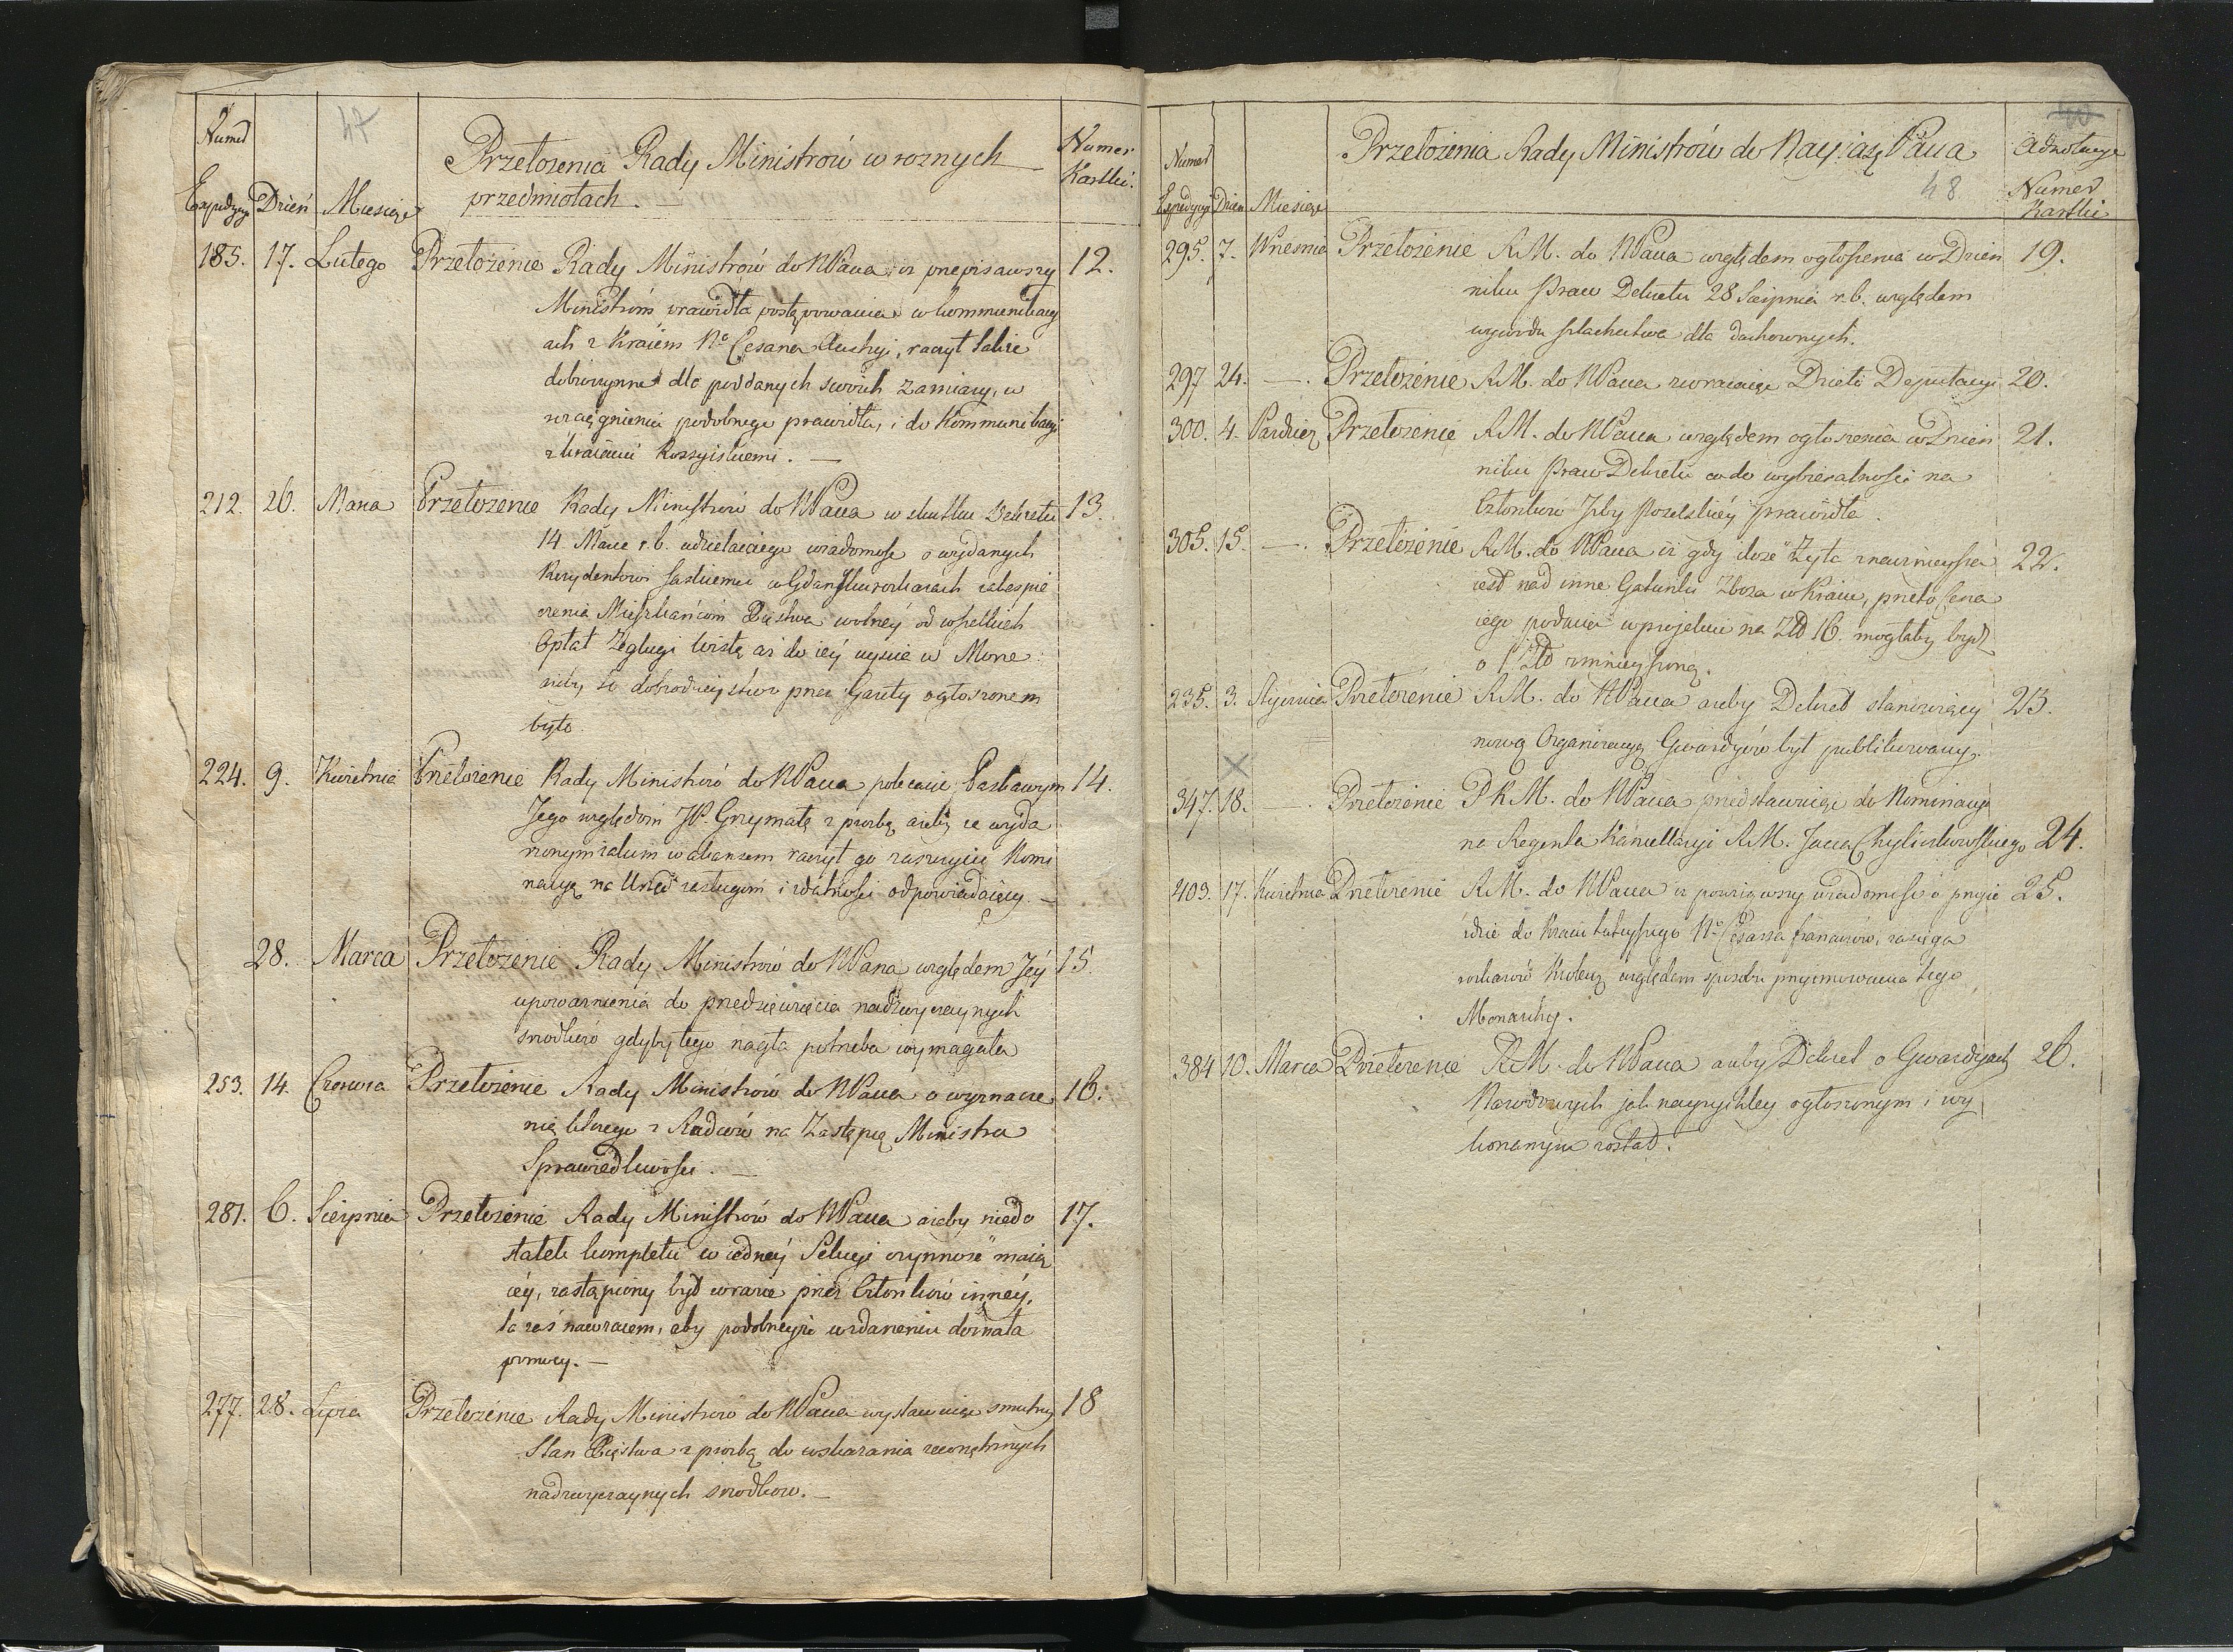 47
Numer
Expedycyi Dzień Miesiąc
Przełożenia Rady Ministrów w roznych
przedmiotach.
Numer
Kartki.
185. 17. Lutego Przełożenie Rady Ministrów do NPana iż przepisawszy 12.
Ministrom prawidła postępowania w kommunikacy
ach z Kraiem No Cesarza Austryi, raczył także
dobroczynne dla poddanych swoich zamiary, w
rozciągnieniu podobnego prawidła, i do Kommunikacyi
z kraiami Rossyiskiemi. —
212. 26. Marca Przełożenie Rady Ministrów do NPana w skutku Dekretu 13.
14 Marca r.b. udzielaiącego wiadomość o wydanych
Rezydentowi Saskiemu w Gdańsku rozkazach zabespie
czenia Mieszkańcom Xięstwa wolnéy od wszelkich
Opłat Żeglugi Wisłą aż do iéy uyscia w Morze
ażeby to dobrodzieystwo przez Gazety ogłoszonem
było.
224. 9. Kwietnia Przełożenie Rady Ministrów do NPana polecaiąc Łaskawym 14.
Jego względom JP. Grzymałę z prozbą ażeby ze wyda
rzonym wakansem raczył go zaszczycić Nomi
nacyą na Urząd zasługom i zdatności odpowiadaiący. —
28. Marca Przełożenie Rady Ministrów do NPana względem Jéy 15.
upoważnienia do przedsięwzięcia nadzwyczaynych
srodków gdyby tego nagła potrzeba wymagała
253. 14. Czerwca Przełożenie Rady Ministrów do NPana o wyznacze 16.
nie którego z Radców na Zastępcę Ministra
Sprawiedliwości. —
281. 6. Sierpnia Przełożenie Rady Ministrów do NPana ażeby niedo 17.
statek kompletu w iednéy Sekcyi czynność maiąc
éy, zastąpiony był w razie przez Członków innéy,
ta zaś nawzaiem, aby podobnéyże w zdarzeniu doznała
pomocy. —
277. 28. Lipca Przełożenie Rady Ministrów do NPana wystawuiąc smutny 18
Stan Xięstwa z prozbą do wskazania zewnętrznych
nadzwyczaynych srodkow. —
40
Numer
Expedycyi Dzien Miesiąc
Przełożenia Rady Ministrów do Nayiaś. Pana
48
Adnotacye
Numer
Kartki
295. 7. Wrzesnia Przełożenie R.M. do NPana względem ogłoszenia w Dzien 19.
niku Praw Dekretu 28 Sierpnia r.b. względem
wywodu szlachectwa dla duchownych.
297 24. —. Przełożenie R.M. do NPana zwracaiąc Dzieło Deputacyi 20.
300. 4. Pazdzier Przełożenie R.M. do NPana względem ogłoszenia w Dzien 21.
niku Praw Dekretu co do wybieralności na
Członków Izby Poselskiéy prawidła.
305. 15. —. Przełożenie R.M. do NPana iż gdy ilość Żyta znacznieysza 22.
iest nad inne Gatunki Zboża w Kraiu, przeto Cena
iego podana w projekcie na Zł 16. mogłaby bydź
o 1 Zł zmnieyszoną.
235. 3. Stycznia Przełożenie R.M. do NPana ażeby Dekret stanowiący 23.
nową Organizacyą Gwardyów był publikowany.
347. 18. —. Przełożenie P.R.M. do NPana przedstawuiąc do Nominacyi
na Regenta Kancellaryi R.M. Jacka Chyliczkowskiego 24.
403. 17. Kwietnia Przełożenie R.M. do NPana iż powziąwszy wiadomość o przyie 25.
zdzie do kraiu tuteyszego No Cesarza francuzów, zasięga
rozkazów Krolew względem sposobu przyimowania tego
Monarchy.
384 10. Marca Przełożenie R.M. do NPana ażeby Dekret o Gwardyach 26.
Narodowych jak nayprychley ogłoszonym i wy
konanym został.